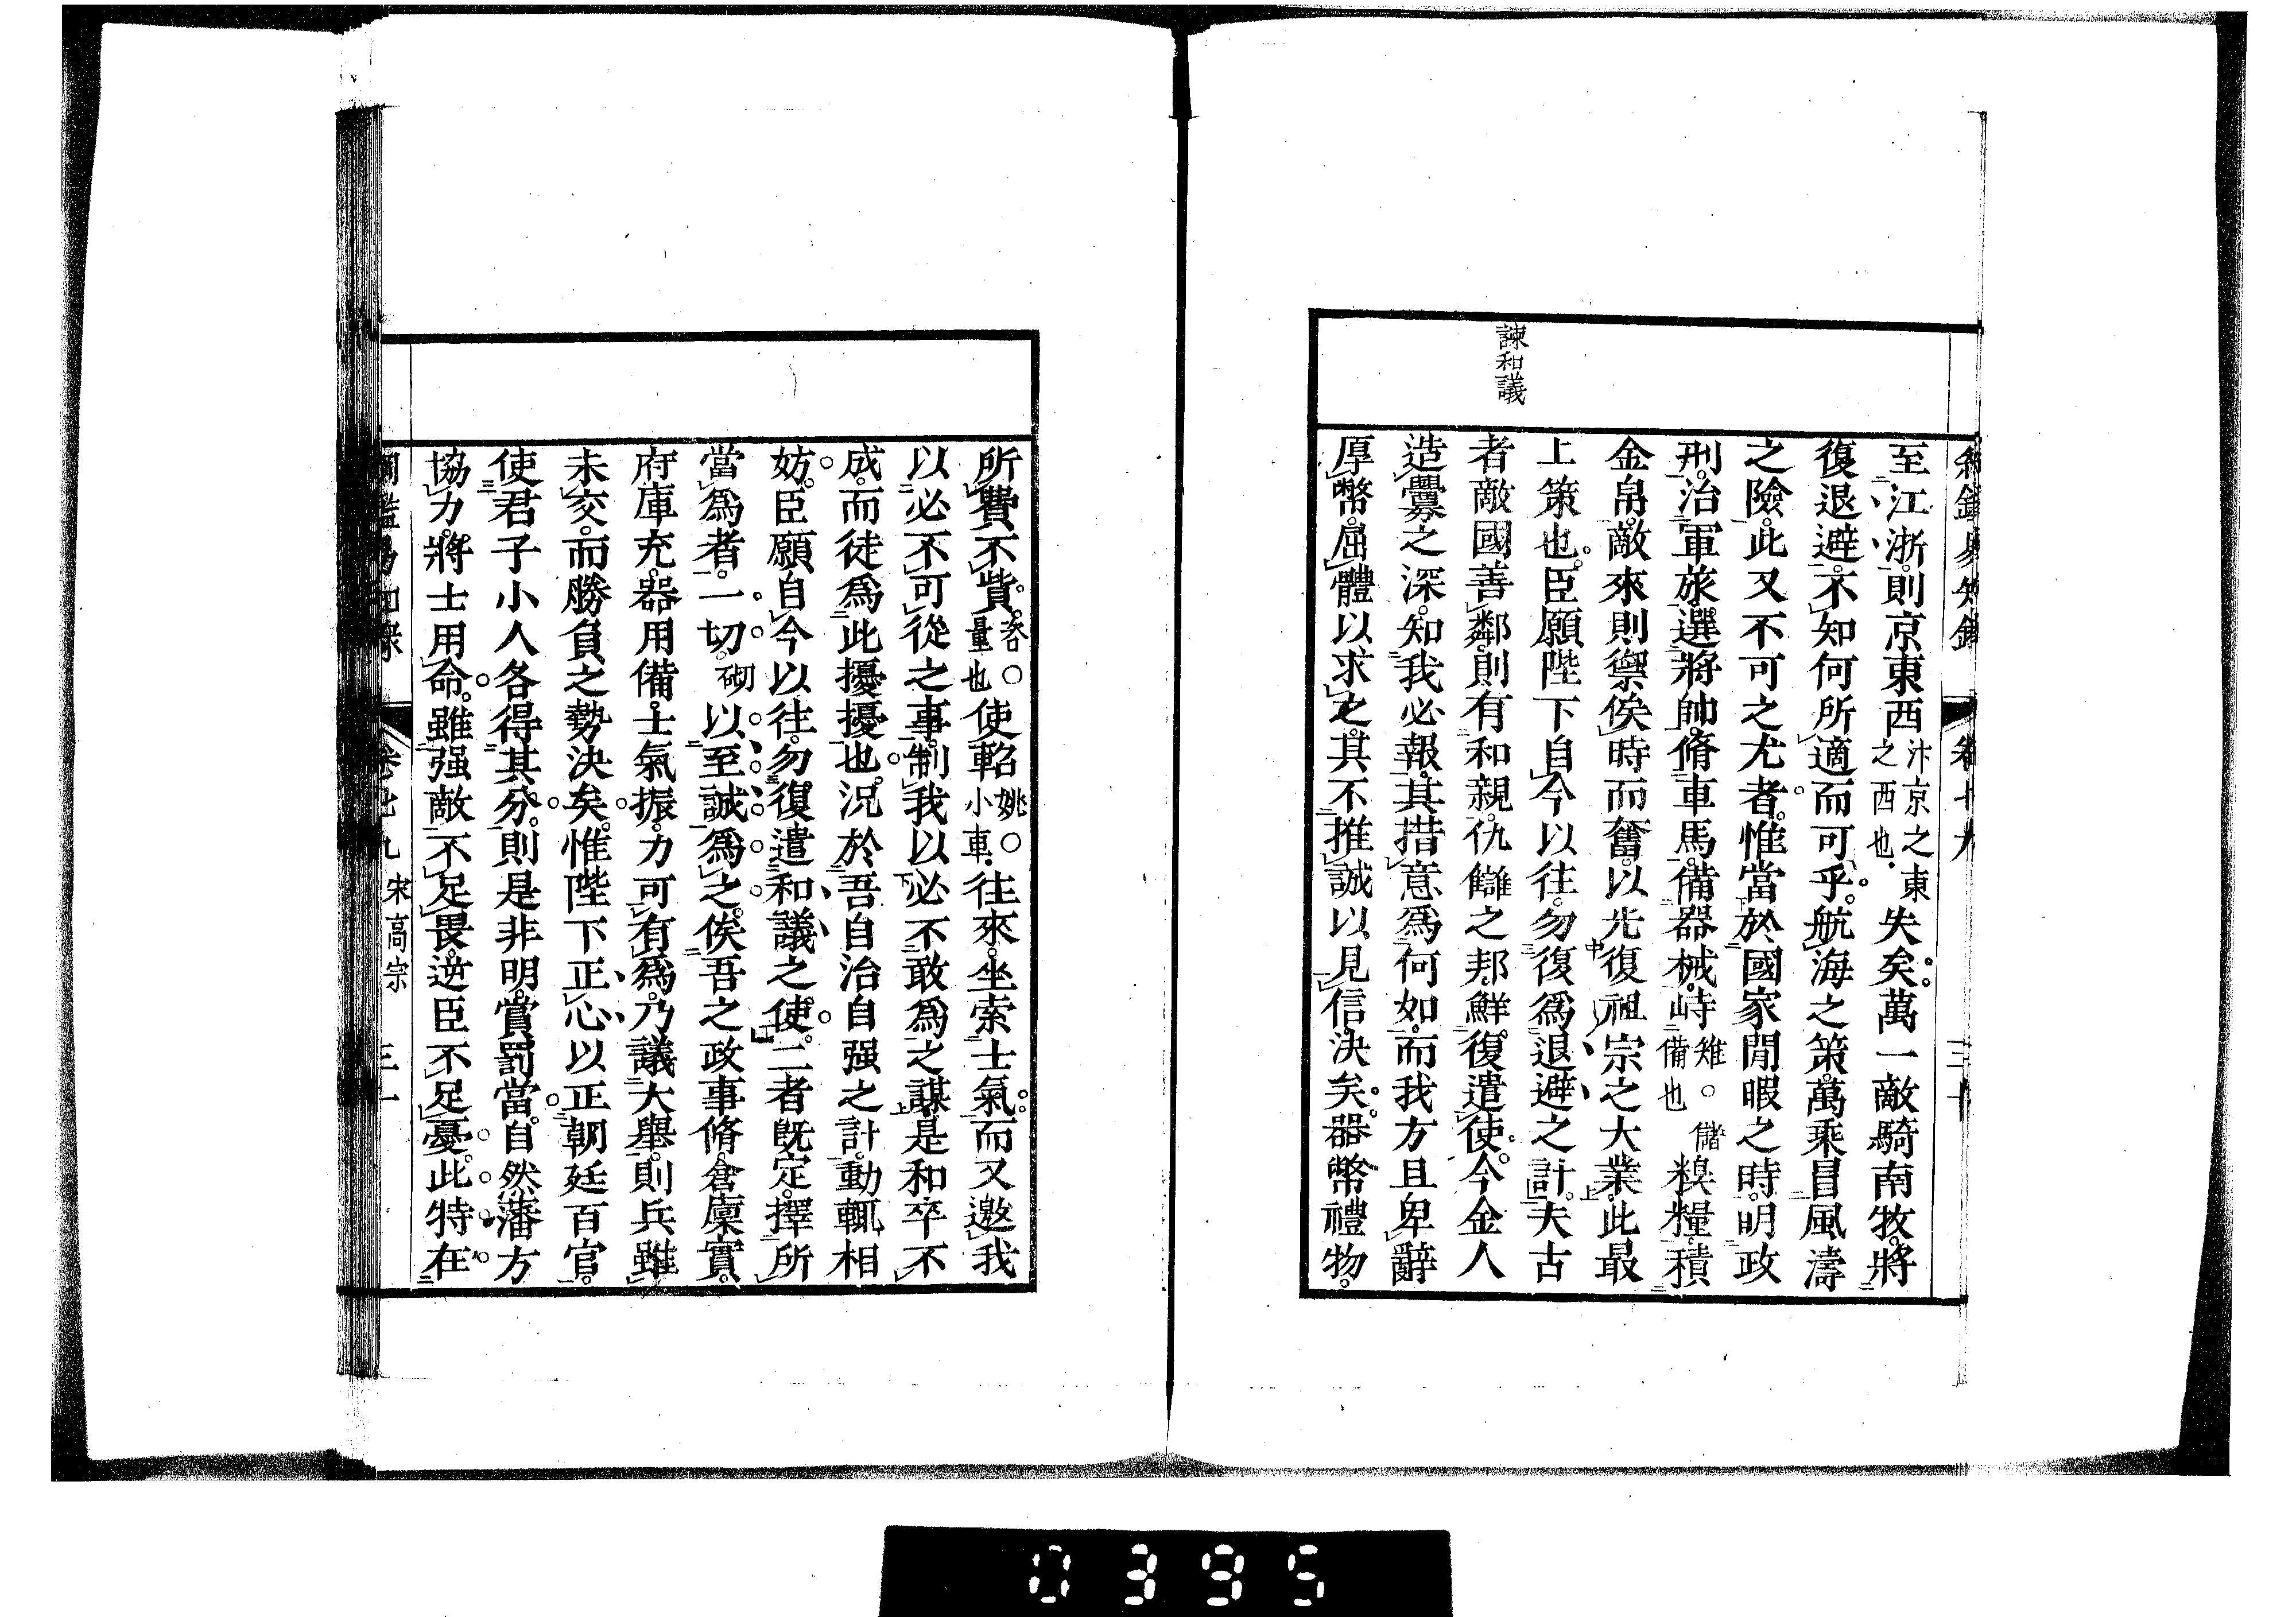 諫和議
至江浙則京東西汴京之東之西也失矣萬一敵騎南牧將
復退避不知何所適而可乎航海之策萬乘冒風濤
之險此又不可之尤者惟當於國家閒暇之時明政
刑治軍旅選將帥脩車馬備器械峙雉○儲備也糗糧積
金帛敵來則禦俟時而奮以光復祖宗之大業此最
上策也臣願陛下自今以往勿復爲退避之計夫古
者敵國善鄰則有和親仇讎之邦鮮復遣使今金人
造釁之深知我必報其措意爲何如而我方且卑辭
厚幣屈體以求之其不推誠以見信決矣器幣禮物
所費不貲咨○量也使軺姚○小車往來坐索士氣而又邀我
以必不可從之事制我以必不敢爲之謀是和卒不
成而徒爲此擾擾也況於吾自治自强之計動輒相
妨臣願自今以往勿復遣和議之使二者旣定擇所
當爲者一切砌以至誠爲之俟吾之政事脩倉廩實
府庫充器用備士氣振力可有爲乃議大舉則兵雖
未交而勝負之勢決矣惟陛下正心以正朝廷百官
使君子小人各得其分則是非明賞罰當自然藩方
協力將士用命雖强敵不足畏逆臣不足憂此特在
宋高宗
0395